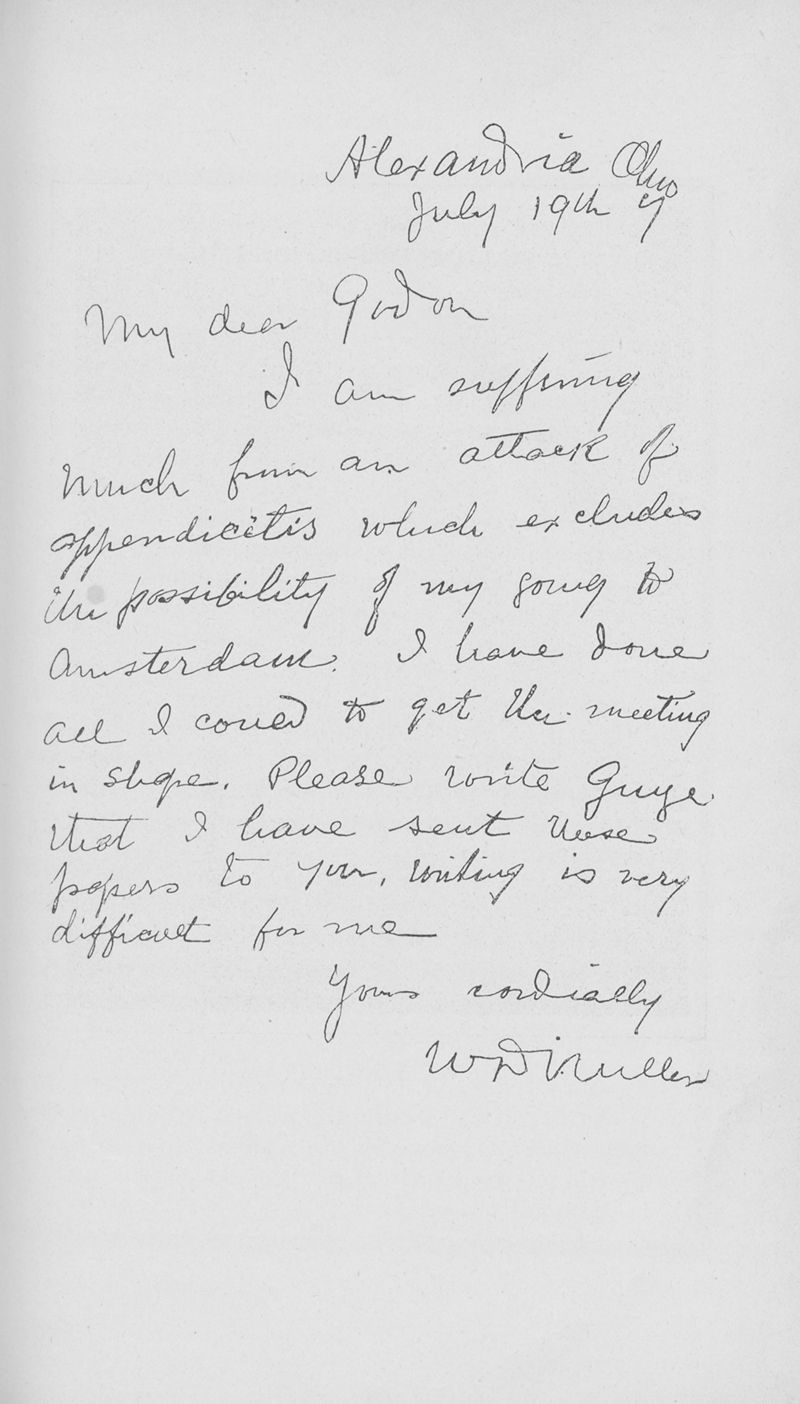 Alexandria Ohio
July 19th 7
My dear Godon
I am suffering
much from an attack of
appendicitis which excludes
the possibility of my going to
Amsterdam. I have done
all I could to get the meeting
in shape. Please write Guye
that I have sent these
papers to you, writing is very
difficult for me
Yours cordially
W D Miller